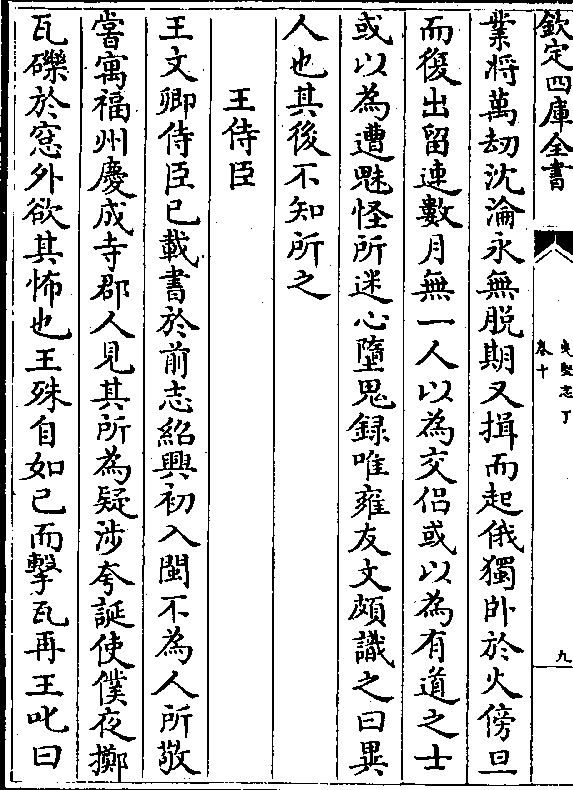 欽定四庫全書
夷堅志丁
卷十
九
業將萬劫沈淪永無脱期又揖而起俄獨卧於火傍旦
而復出留連數月無一人以為交侣或以為有道之士
或以為遭魅怪所迷心墮鬼録唯雍友文頗識之曰異
人也其後不知所之
王侍臣
王文卿侍臣已載書於前志紹興初入閩不為人所敬
嘗寓福州慶成寺郡人見其所為疑涉夸誕使僕夜擲
瓦礫於窓外欲其怖也王殊自如已而擊瓦再王叱曰